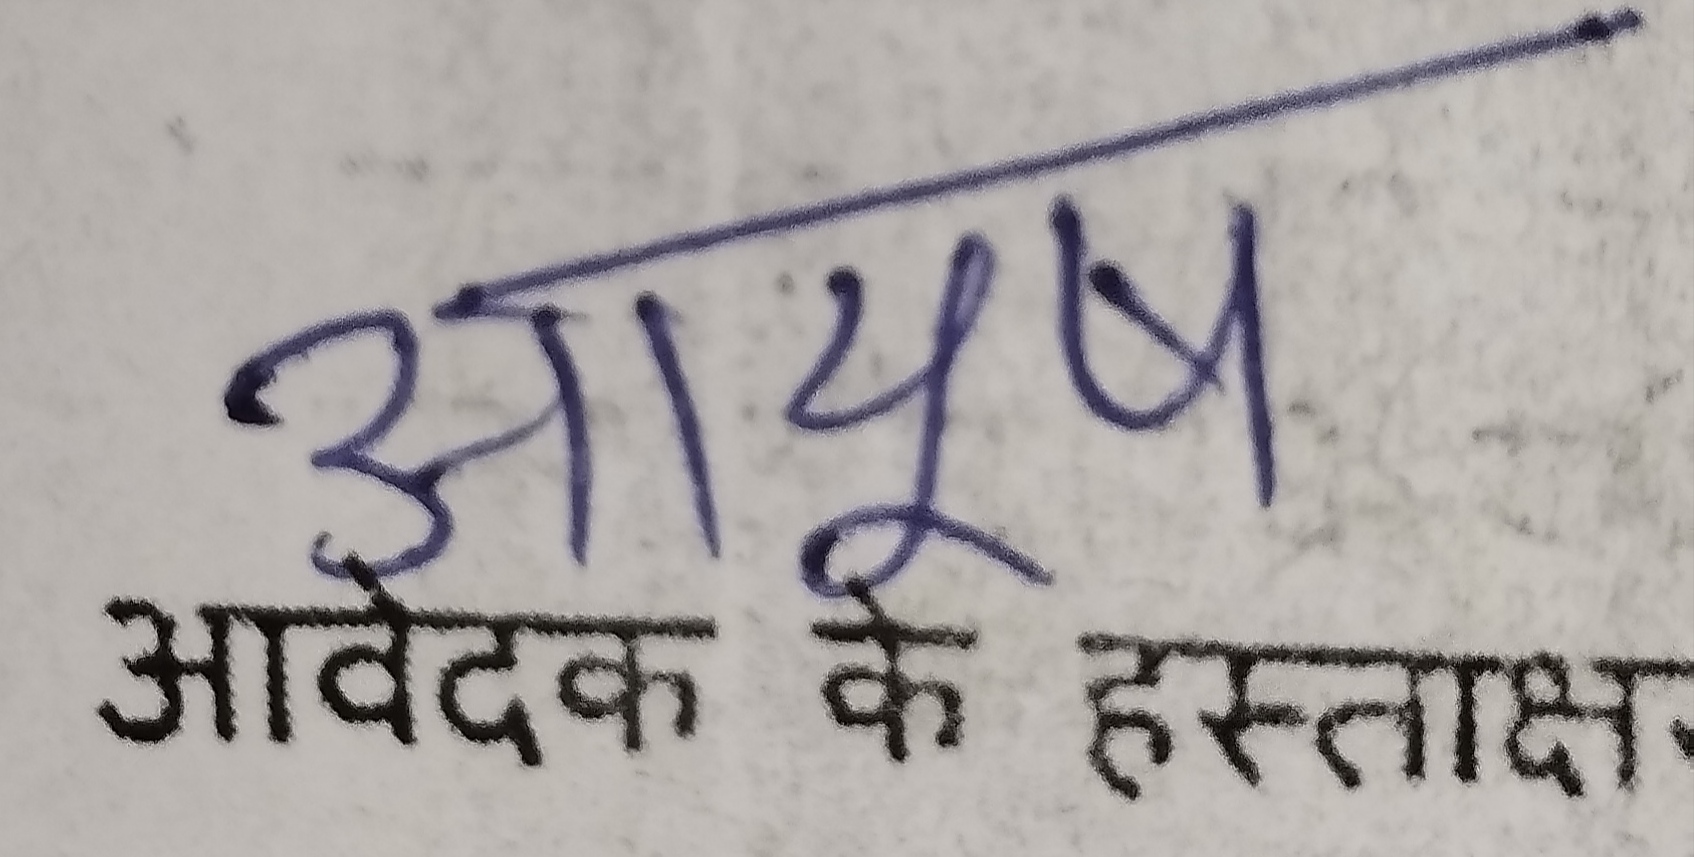 आयूष
आवेदक के हस्ताक्षर